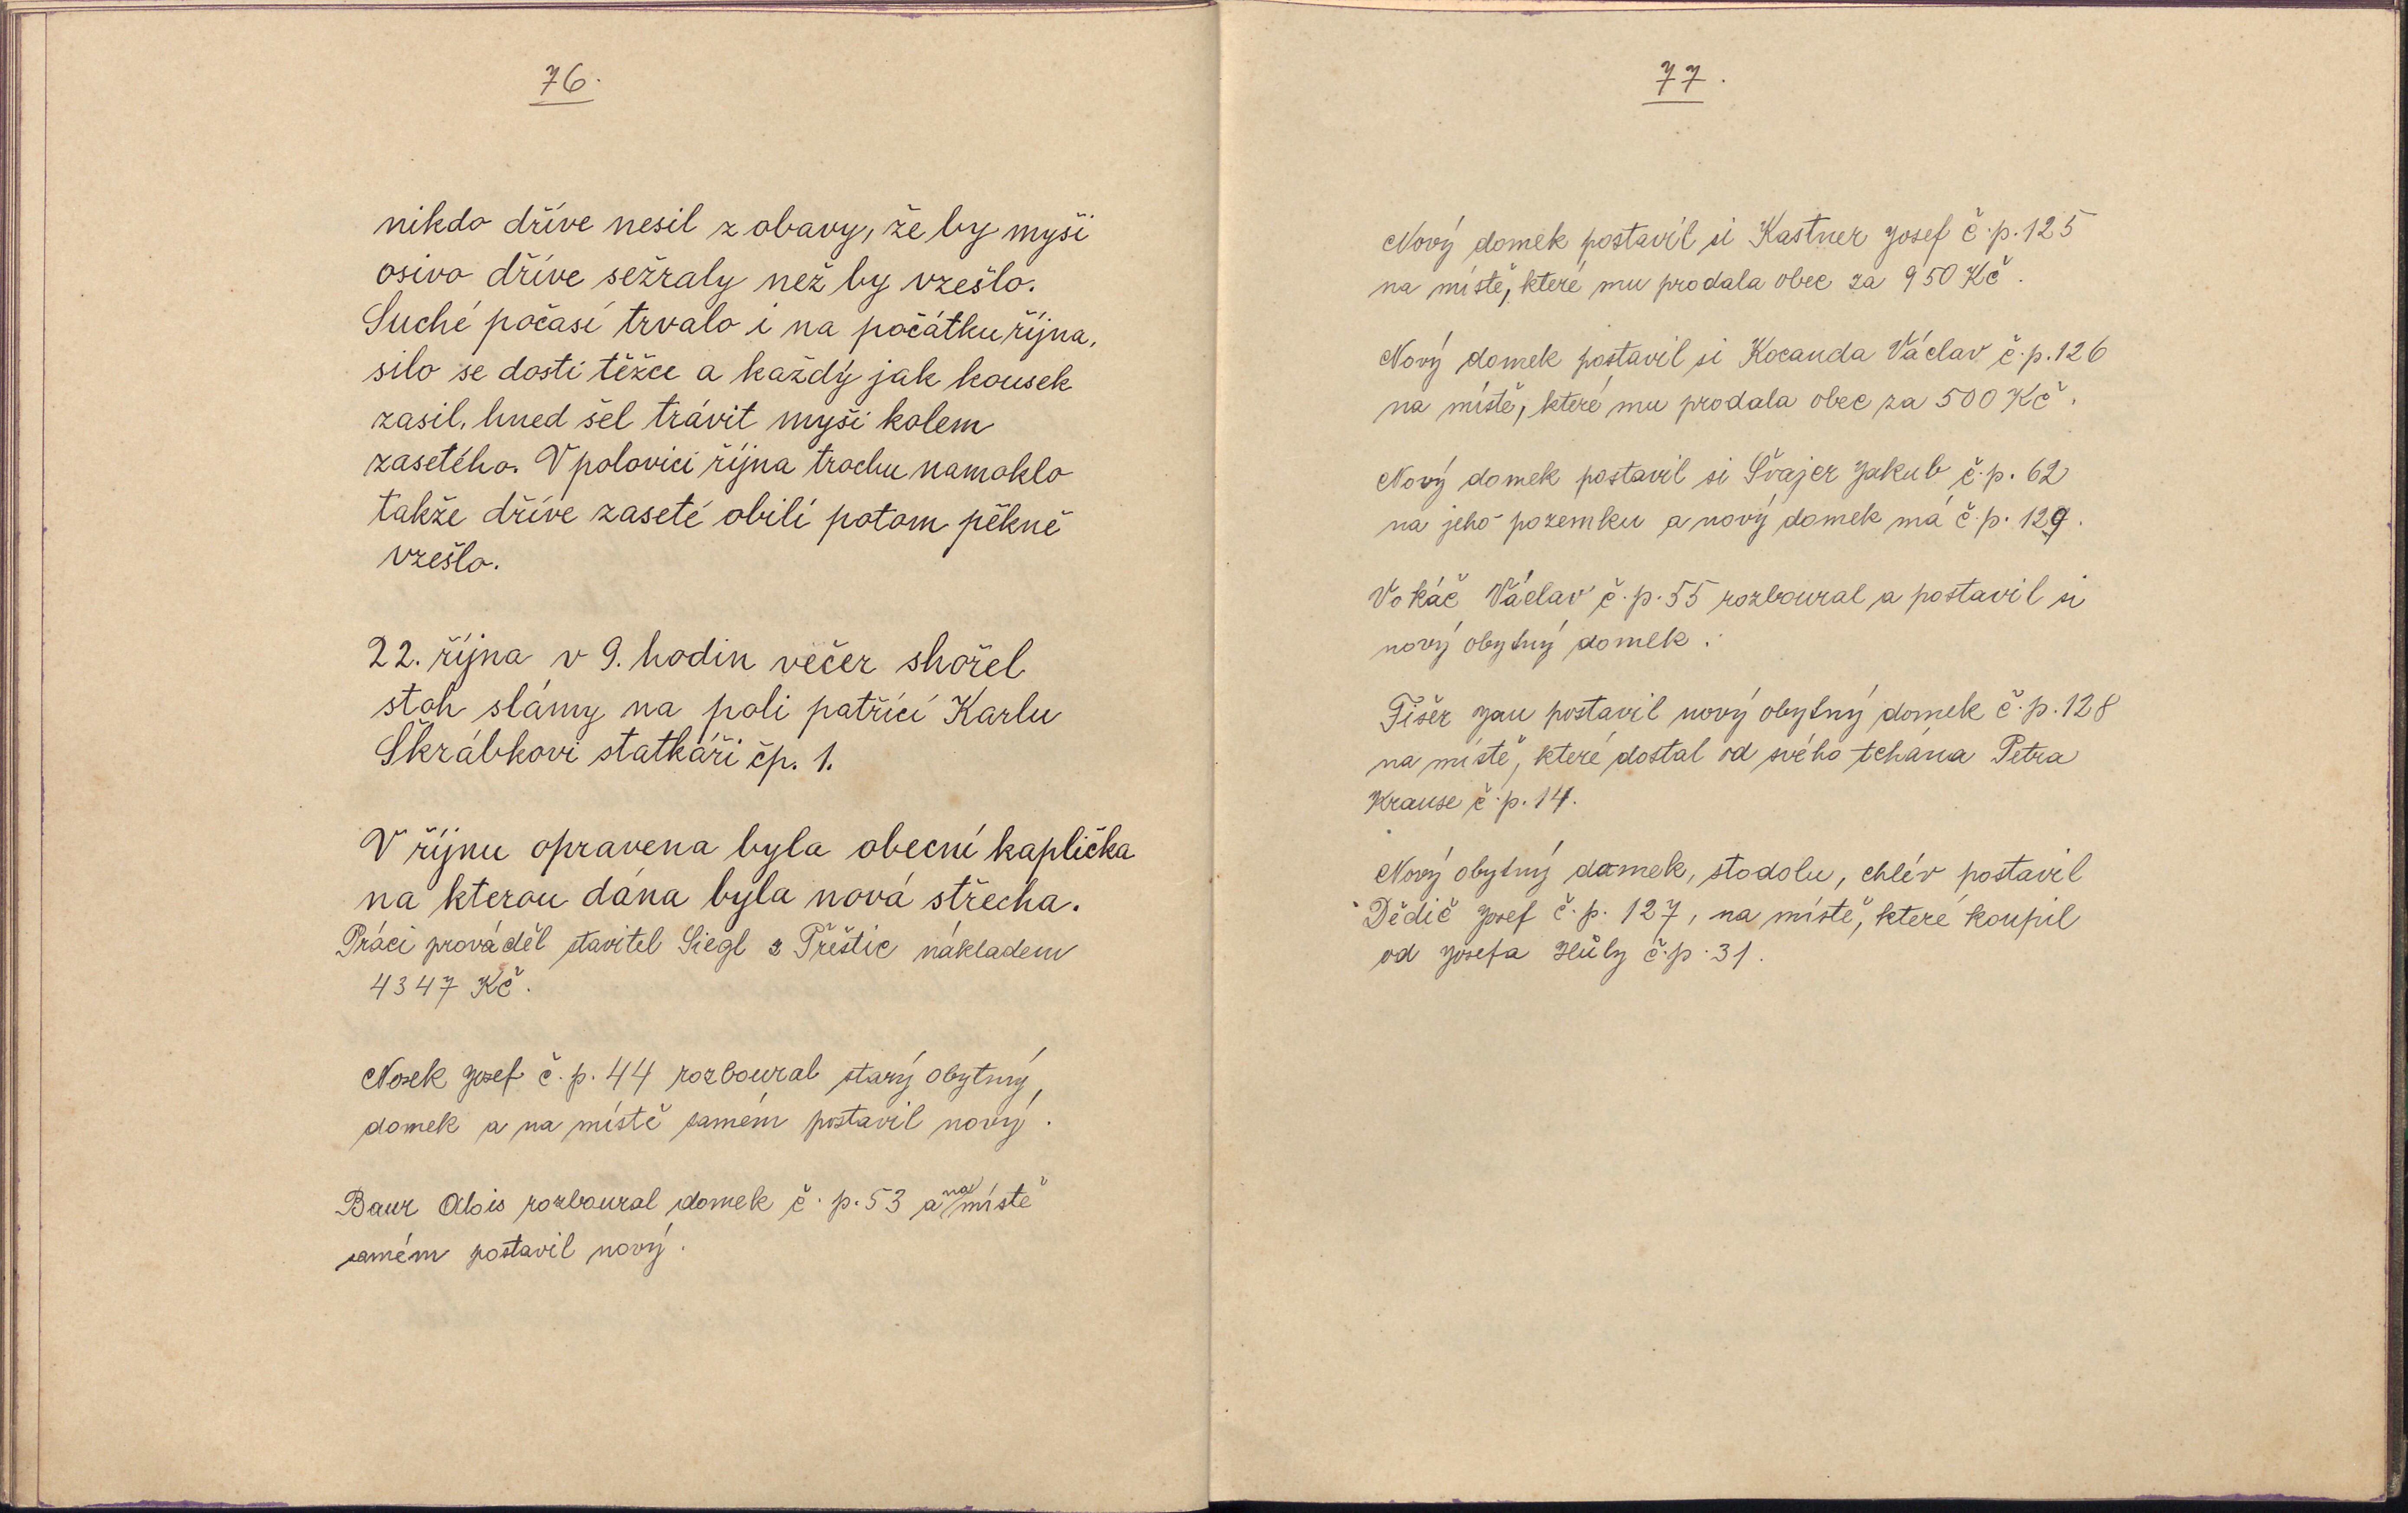 76.
nikdo dříve nesil z obavy, že by myši
osivo dříve sežraly než by vzešlo.
Suché počasí trvalo i na počátku října,
silo se dosti těžce a každý jak kousek
zasil, hned šel trávit myši kolem
zasetého. V polovici října trochu namoklo
takže dříve zaseté obilí potom pěkně
vzešlo.
22. října v 9. hodin večer shořel
stoh slámy na poli patřící Karlu
Skrábkovi statkáři čp. 1.
V říjnu opravena byla obecní kaplička
na kterou dána byla nová střecha.
Práci prováděl stavitel Siegl z Přeštic nákladem
4347 Kč.
Nosek Josef č. p. 44 rozboural starý obytný
domek a na místě samém postavil nový.
Baur Alois rozboural domek č. p. 53 a na místě
samém postavil nový.
77.
Nový domek postavil si Kastner Josef č. p. 125
na místě, které mu prodala obec za 950 Kč.
Nový domek postavil si Kocanda Václav č. p. 126
na místě, které mu prodala obec za 500 Kč.
Nový domek postavil si Švajer Jakub č. p. 62
na jeho pozemku a nový domek má č. p. 129.
Vokáč Václav č. p. 55 rozboural a postavil si
nový obytný domek.
Fišer Jan postavil nový obytný domek č. p. 128
na místě, které dostal od svého tchána Petra
Krause č. p. 14.
Nový obytný domek, stodolu, chlév postavil
Dědič Josef č. p. 127, na místě, které koupil
od Josefa Hůly č. p. 31.